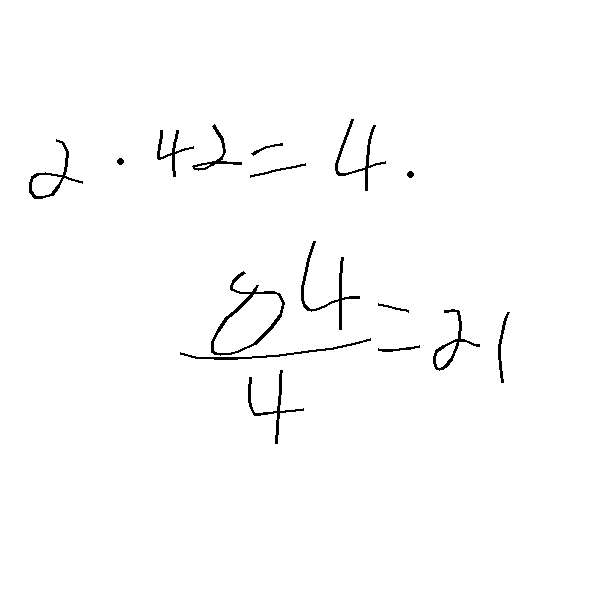 2 · 42 = 4 .
84/4 = 21